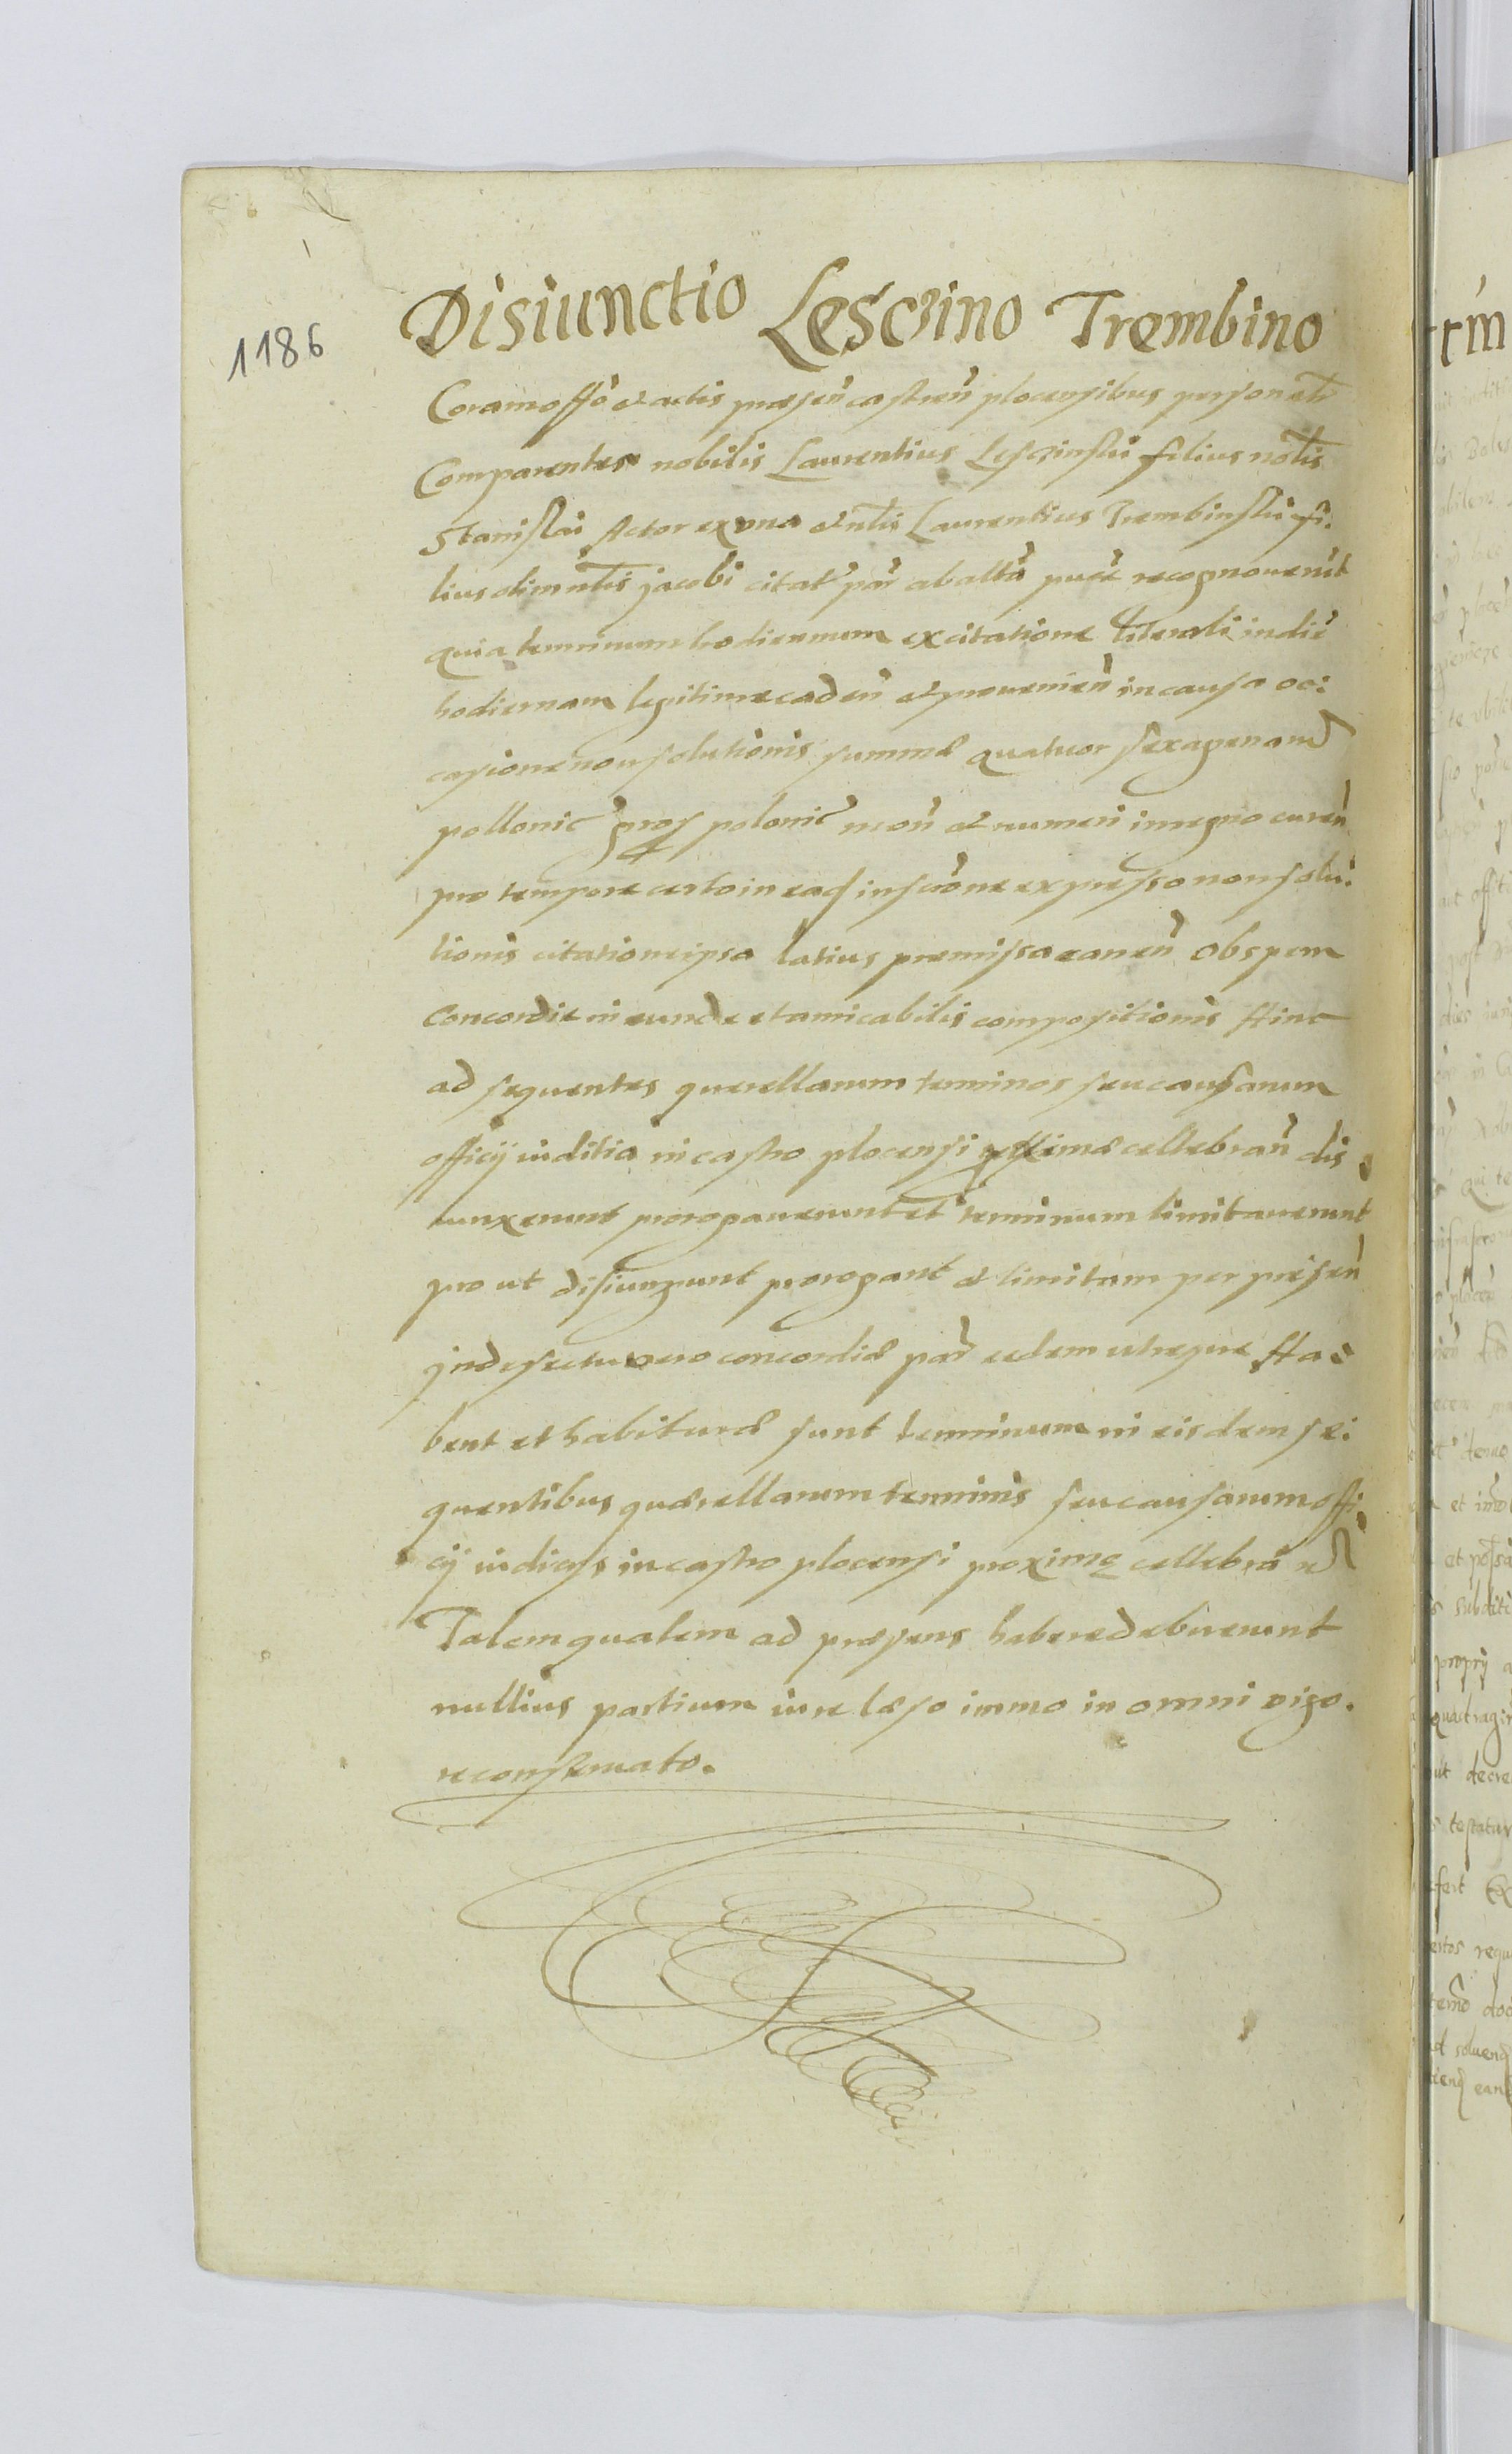 1186
Disiunctio Lesczino Trembino
Coram offo et actis præsen castren plocensibus personalr
Comparentes nobilis Laurentius Lesczinski filius noblis
Stanislai Actor ex vna et nlis Laurentius Trembinski fi:
lius olim nlis jacobi citat par ab alta recognouerut
quia terminum hodiernum ex citatione literali in die
hodiernam legitime caden et prouenien in causa oc:
casione non solutionis summæ quatuor sexagenarum
pollonic gros polonic mon et numeri in regno curen
pro tempore certo in ead inscrone expresso non solu:
tionis citatione ipsa latius premissa canen Ob spem
Concordie in eunde et amicabilis compositionis Hinc
ad sequentes querellarum terminos seu causarum
officij iuditia in castro plocensi cellebran dis
iunxerunt prorogauerunt et terminum limitauerunt
pro ut disiungunt prorogant et limitam per presen
jn defectu vero concordiæ par eedem utreque Ha
bent et habituræ sunt terminum in eisdem se:
quentibus quærellarum terminis seu causarum offi:
cij iudicijs in castro plocensi proxime cellebran
Talem qualem ad præsens habere debuerunt
nullius partium iure læso immo in omni vigo.
re conseruato.